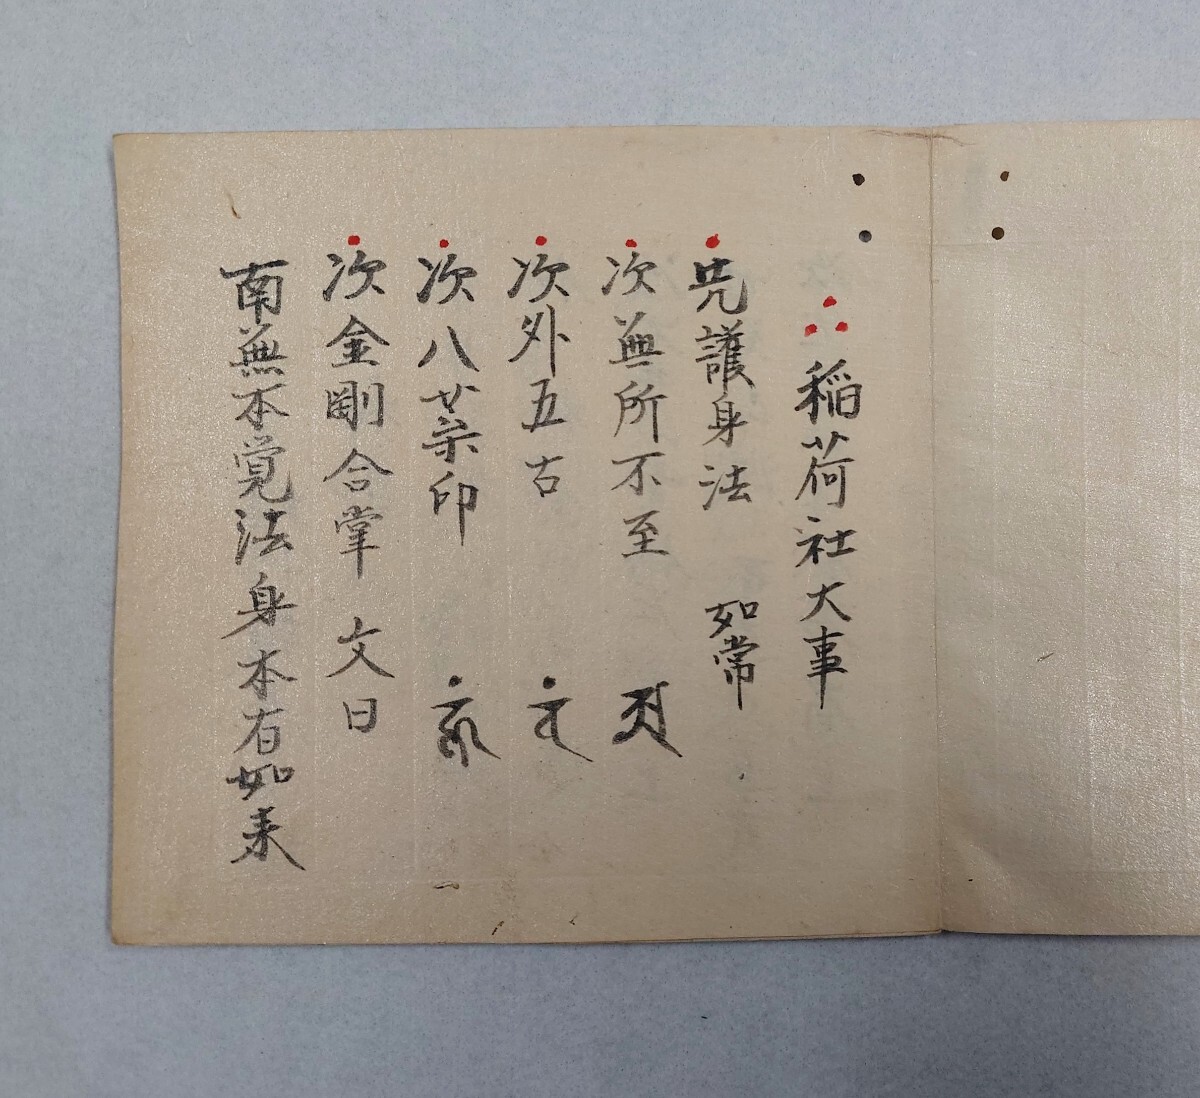 稲荷社大事
先護身法 如常
次無所不至
次外五古
次八葉印
次金剛合掌 文曰
南無本覚法身本有如来